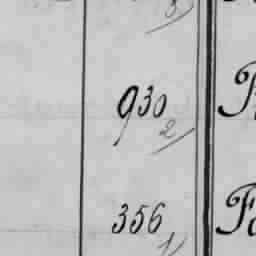 930
2/
356
1/